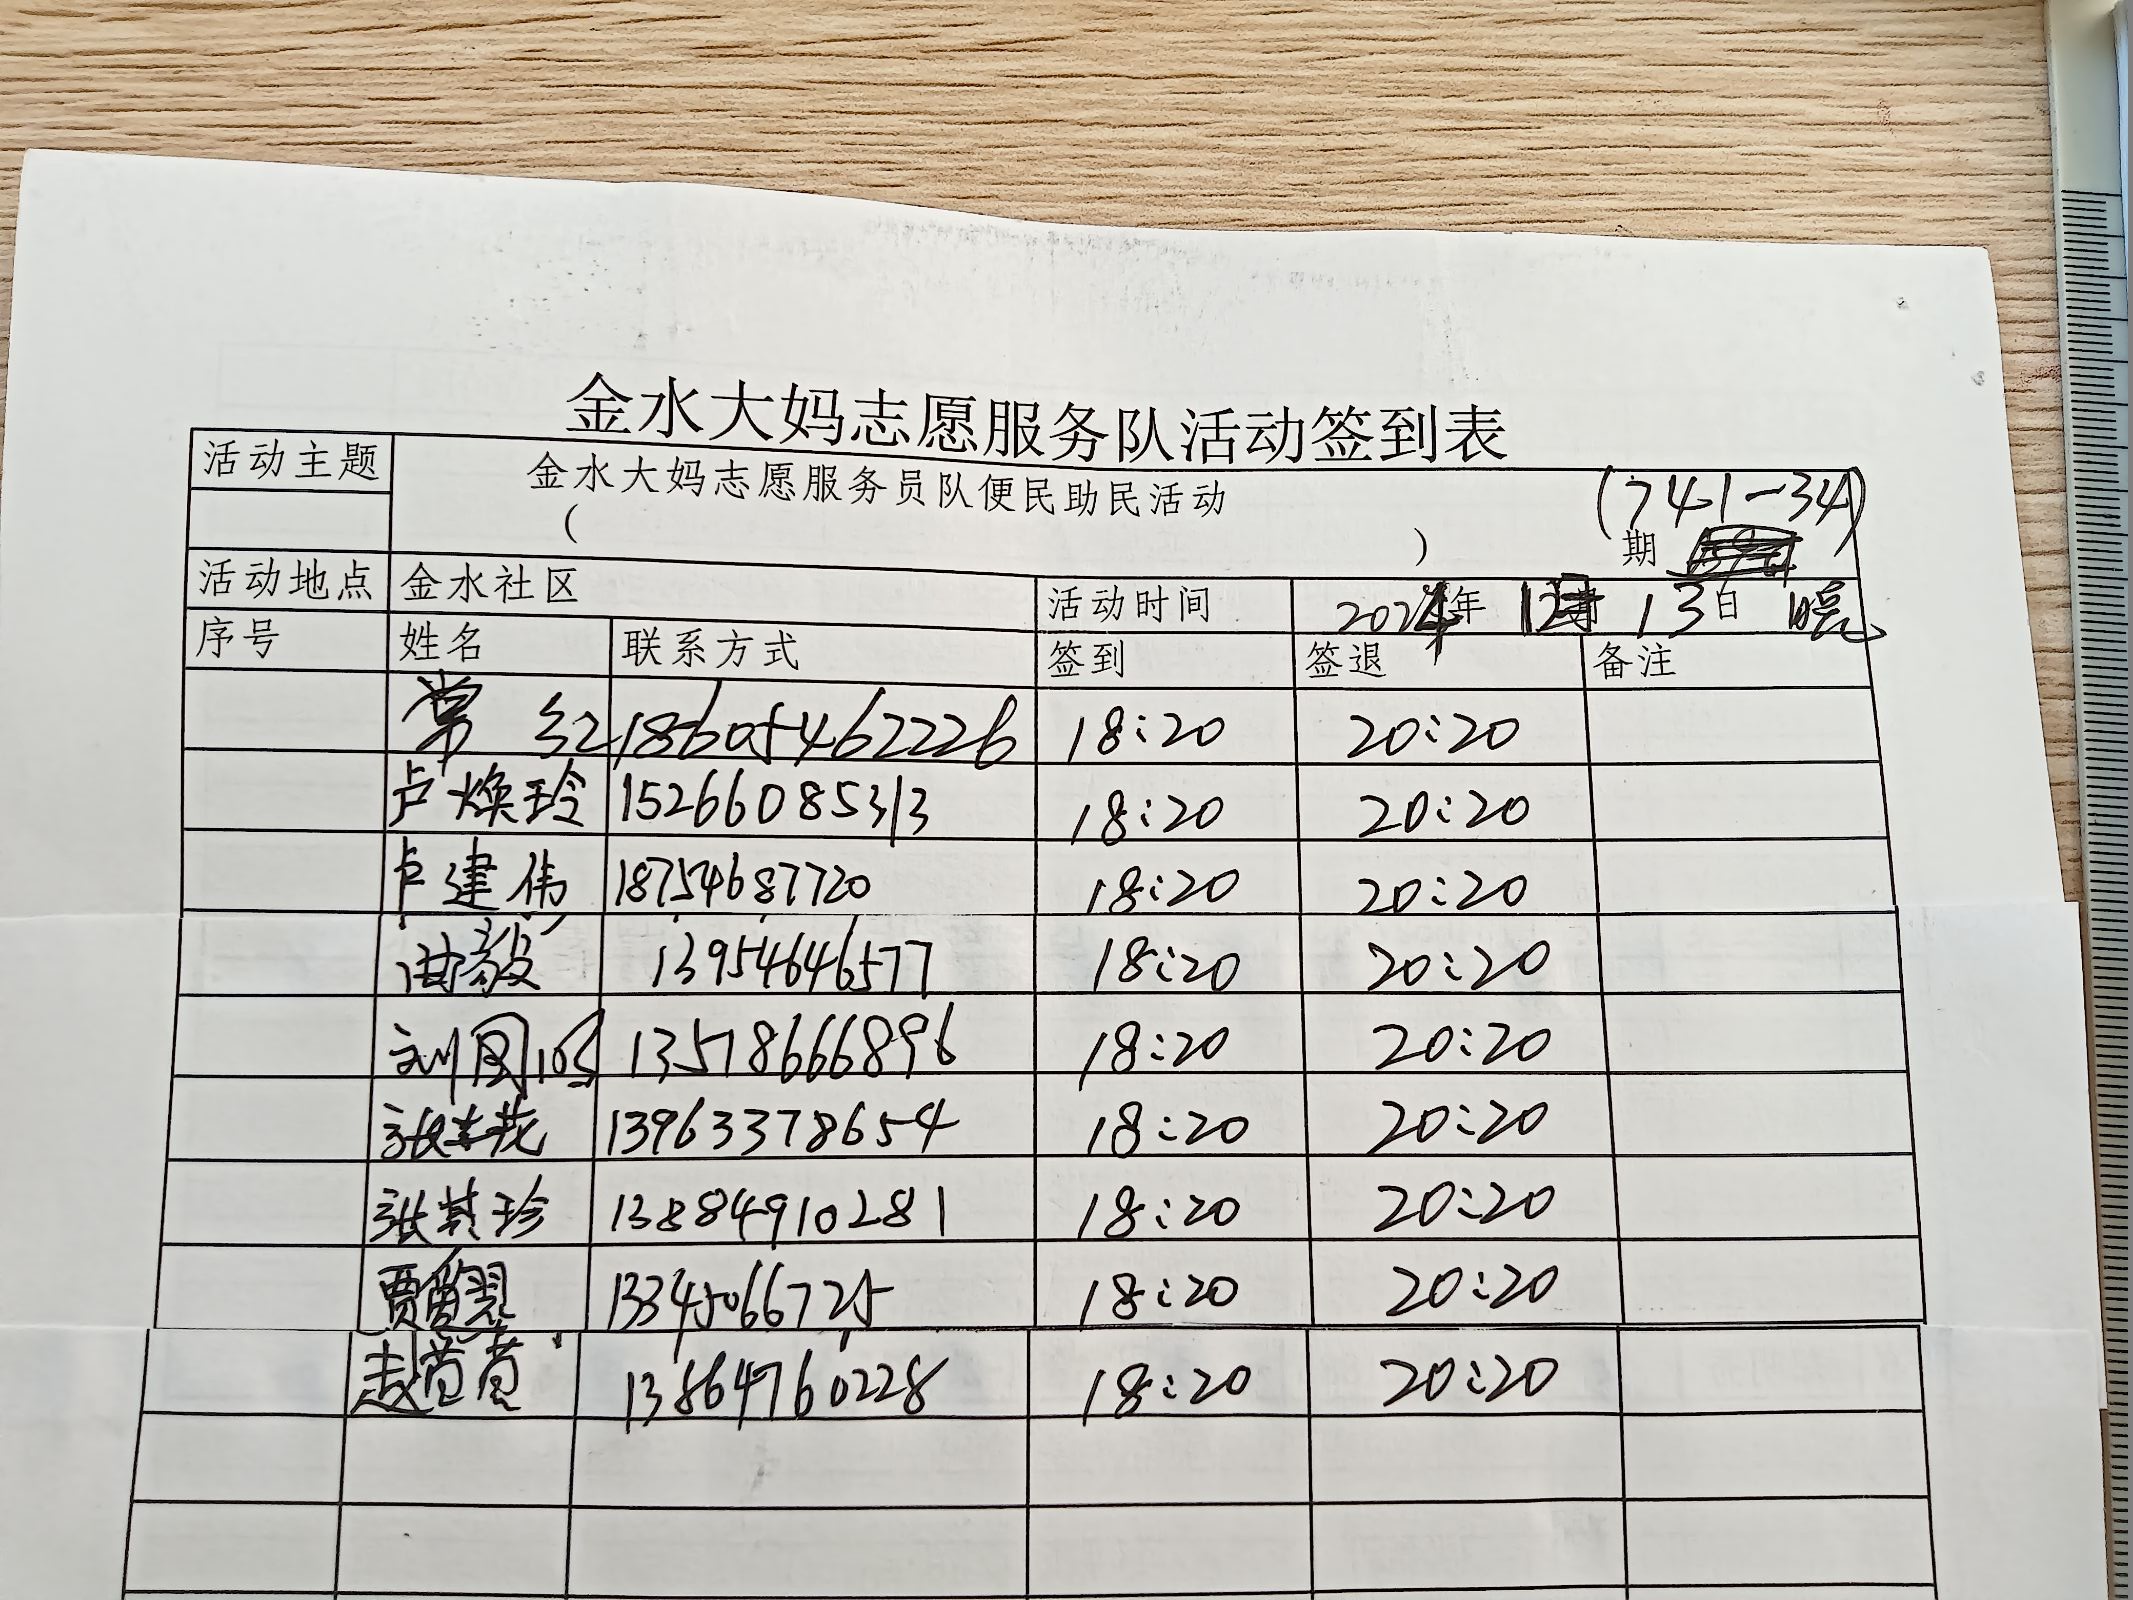 金水大妈志愿服务队活动签到表
活动主题 金水大妈志愿服务员队便民助民活动 (741-34)
( ) 期
活动地点 金水社区 活动时间 2024年 12月 13日 晚
序号 姓名 联系方式 签到 签退 备注
常红 18605462226 18:20 20:20
卢焕玲 15266085313 18:20 20:20
卢建伟 18754687720 18:20 20:20
13954646577 18:20 20:20
刘图 13578666896 18:20 20:20
张 13963378654 18:20 20:20
张其珍 13884910281 18:20 20:20
贾 13345066725 18:20 20:20
赵 13864760228 18:20 20:20